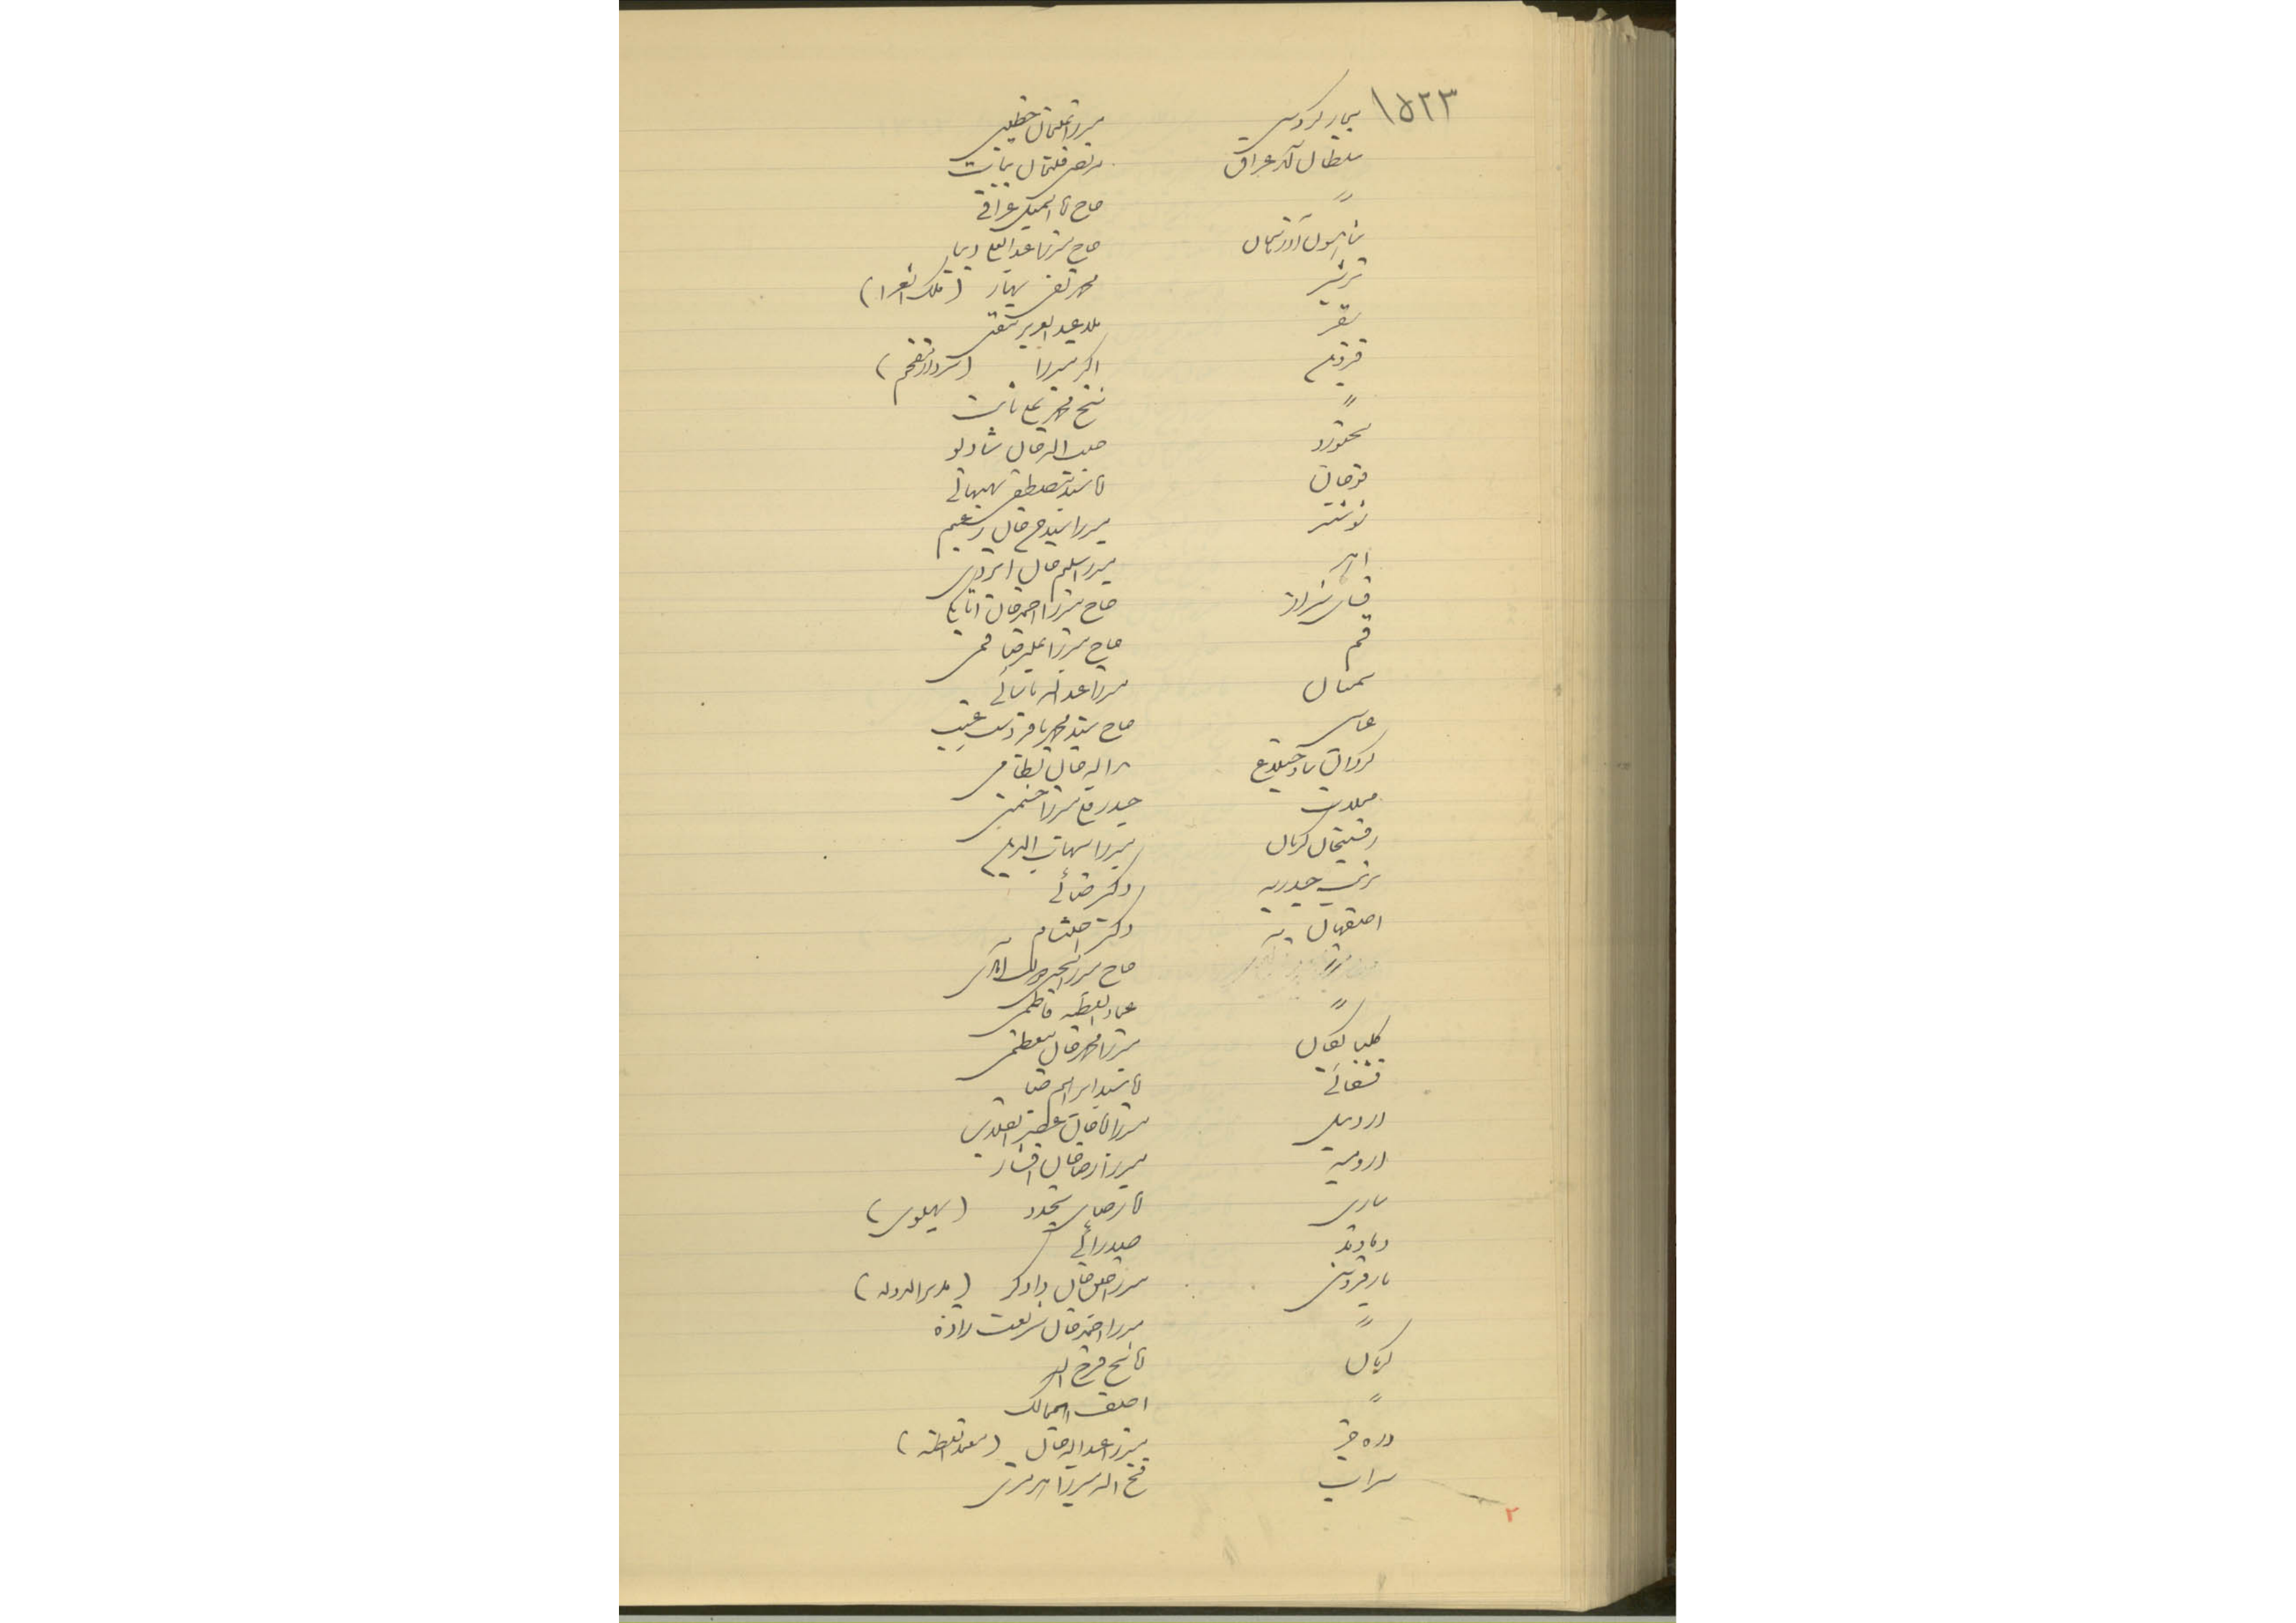 ۱۵۲۳
بیجار گروس میرزا علیخان خطیبی
سلطان آباد عراق مرتضی قلیخان بیات
" حاج آقا اسمعیل عراقی
آذربایجان حاج میرزا دیبا
ترشیز محمد تقی بهار (ملک الشعرا)
سقز ملا عبدالعزیز مفتی
قزوین اکبر میرزا (سردار مفخم)
" شیخ محمد علی ثابت
بجنورد حبیب اله خان شادلو
قوچان آقا سید مصطفی بهبهانی
شوشتر میرزا سید خان زعیم
اهر میرزا سلیم خان ایزدی
فارس شیراز حاج میرزا احمد خان اتابکی
قم حاج میرزا علیرضا قمی
سمنان میرزا عبداله یاسائی
حاج سید محمد باقر دست غیب
اله خان نظامی
حیدر قلی میرزا حشمتی
رفسنجان کرمان میرزا شهاب الدین
تربت حیدریه دکتر ضیائی
اصفهان دکتر احتشام
" حاج میرزا
" عماد السلطنه فاطمی
گلپایگان میرزا محمد خان معظمی
قشقائی آقا سید ابراهیم ضیا
اردبیل میرزا آقا خان عصر انقلاب
ارومیه میرزا رضا خان افشار
ساری آقا رضای تجدد (پهلوی)
دماوند صدرائی
بارفروش میرزا خان دادگر (عدل الدوله)
" میرزا احمد خان شریعت زاده
کرمان آقا شیخ فرج اله
" آصف الممالک
دره جز میرزا عبداله خان (معتمد السلطنه)
سراب فتح اله میرزا
۲